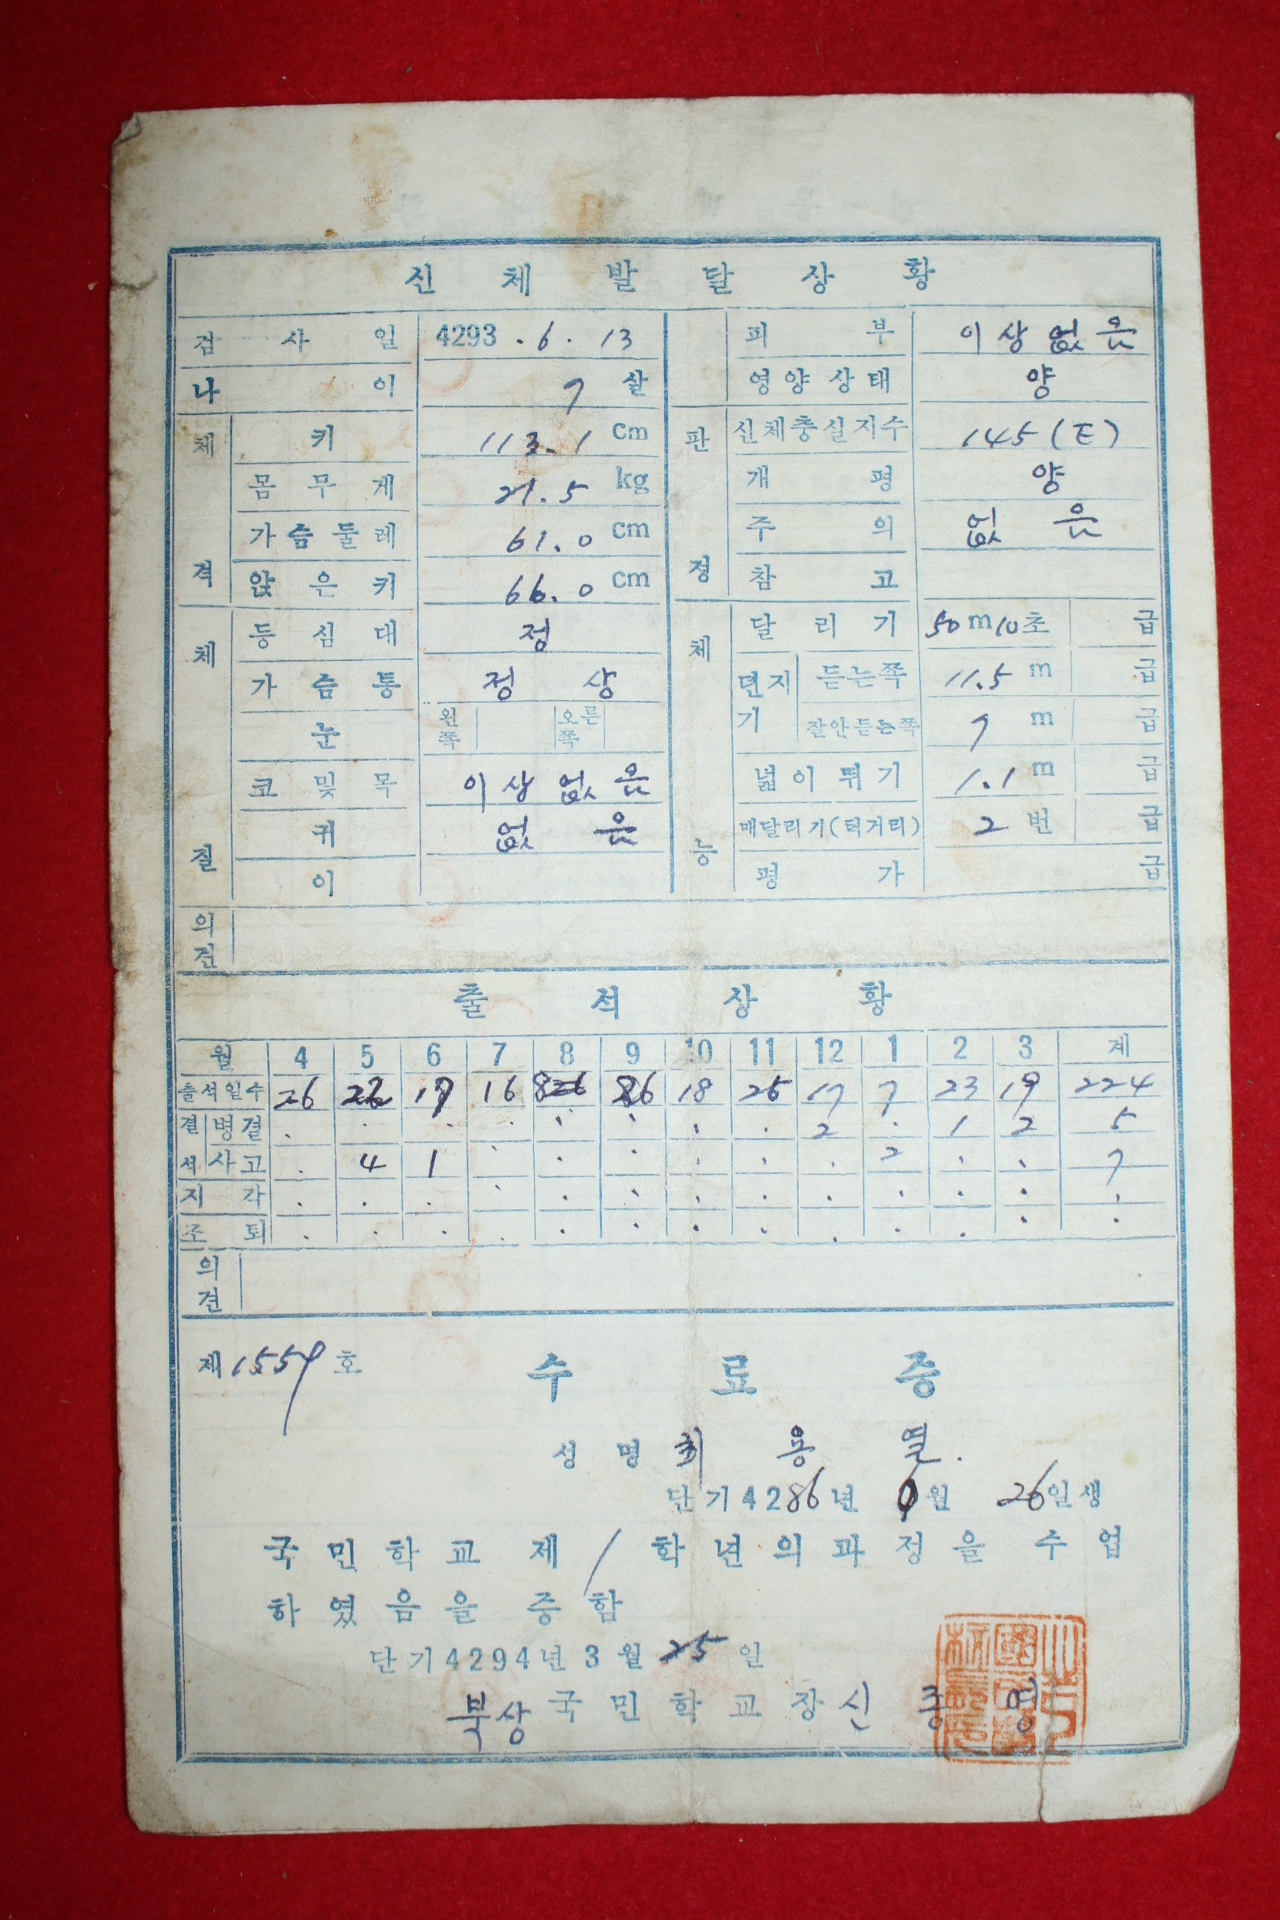 신체발달상황
검사일 4293.6.13
나이 7살
체격
키 113.1 cm
몸무게 21.5 kg
가슴둘레 61.0 cm
앉은키 66.0 cm
체질
등심대 정
가슴통 정상
눈 왼쪽 오른쪽
코및목 이상없음
귀 없음
이
판정
피부 이상없음
영양상태 양
신체충실지수 145(E)
개평 양
주의 없음
참고
체능
달리기 50m10초 급
던지기 듣는쪽 11.5 m 급
잘안듣는쪽 7 m 급
넓이뛰기 1.1 m 급
매달리기(턱거리) 2 번 급
평가 급
의견
출석상황
월 4 5 6 7 8 9 10 11 12 1 2 3 계
출석일수 26 16 18 25 17 7 23 19 224
결석 병결 2 1 2 5
사고 4 1 2 7
지각
조퇴
의견
제1559호 수료증
성명 최용열.
단기4286년 월 26일생
국민학교 제1학년의과정을 수업
하였음을 증함
단기4294년 3월 25일
북상국민학교장 신 명